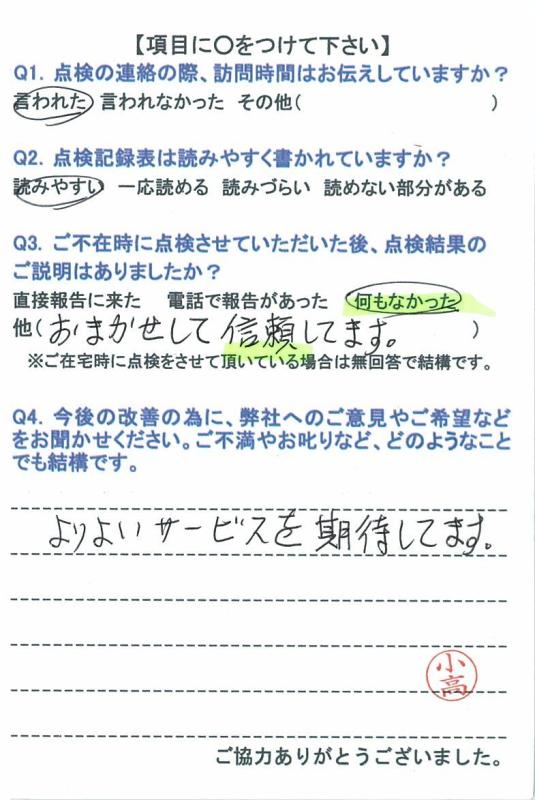 【項目に○をつけて下さい】
Q1. 点検の連絡の際、訪問時間はお伝えしていますか？
言われた 言われなかった その他( )
Q2. 点検記録表は読みやすく書かれていますか？
読みやすい 一応読める 読みづらい 読めない部分がある
Q3. ご不在時に点検させていただいた後、点検結果の
ご説明はありましたか？
直接報告に来た 電話で報告があった 何もなかった
他(おまかせして信頼してます。 )
※ご在宅時に点検をさせて頂いている場合は無回答で結構です。
Q4. 今後の改善の為に、弊社へのご意見やご希望など
をお聞かせください。ご不満やお叱りなど、どのようなこと
でも結構です。
よりよいサービスを期待してます。
小高
ご協力ありがとうございました。